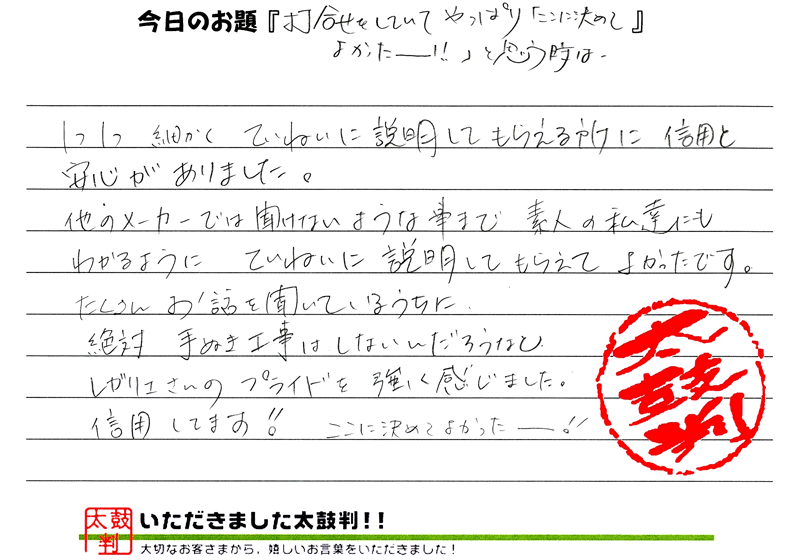 今日のお題『打合せをしていてやっぱり「ここに決めて』
よかたー!!」と思う時は、
1つ1つ 細かく ていねいに 説明して もらえる所に 信用と
安心が ありました。
他のメーカーでは 聞けないような事まで 素人の私達にも
わかるように ていねいに 説明して もらえて よかったです。
たくさん お話を聞いているうちに
絶対 手ぬき工事は しないんだろうなと
レガリエさんの プライドを 強く感じました。
信用してます!! ここに決めてよかったー!!
太鼓判
太鼓判
いただきました太鼓判!!
大切なお客さまから、嬉しいお言葉をいただきました!